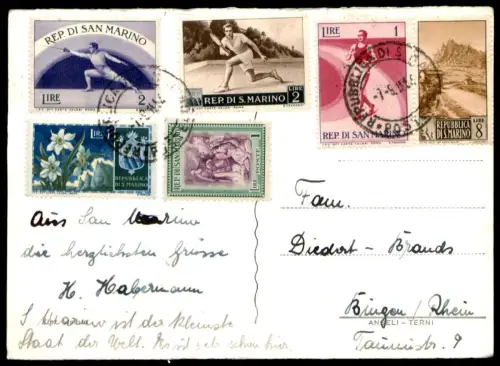 REP. DI SAN MARINO
LIRE 2
LIRE 2
REP. DI S. MARINO
LIRE 1
REP. DI SAN MARINO
LIRE 8
REPUBBLICA DI S. MARINO
LIRE
REPUBBLICA DI S. MARINO
REP. DI SAN MARINO
1
Aus San Marino
die herzlichsten Grüsse
H. Habermann
S. Marino ist der kleinste
Staat der Welt. Es ist sehr schön hier.
Fam.
Diedort - Brands
Bingen / Rhein
ANGELI - TERNI
Taunusstr. 9